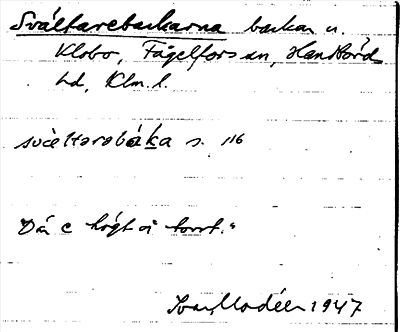 Svältarebackarna backar n.
Klobo, Fågelfors sn, Handbörd
hd, Klm. l.
svèltarabáka s. 116
"Dä e högt å torrt."
Ivar Modéer 1947